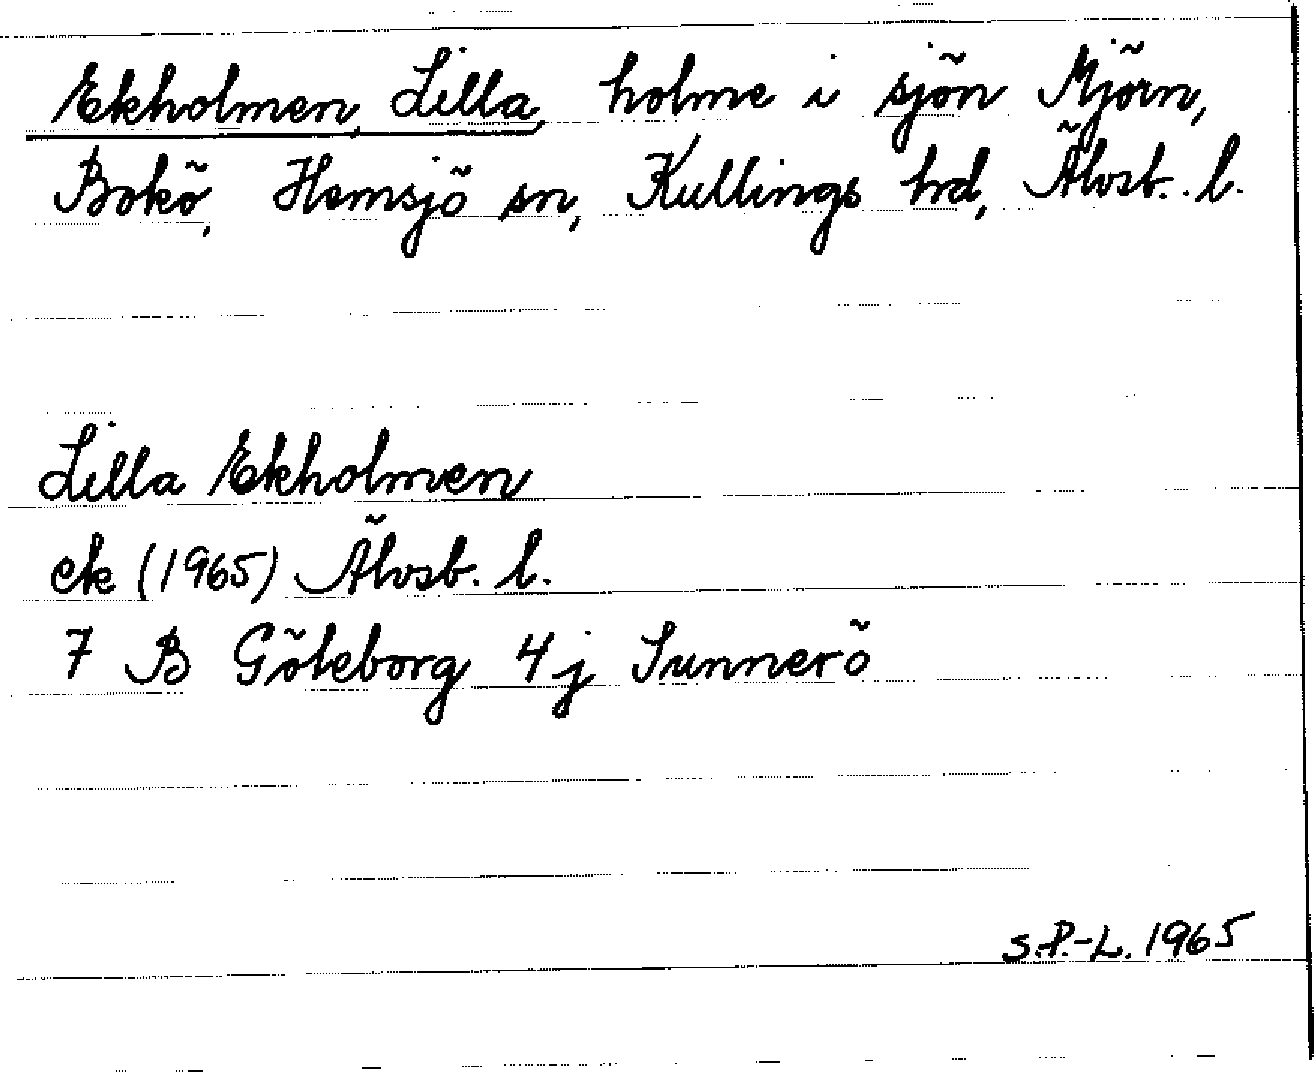 Ekholmen, Lilla, holme i sjön Mjörn,
Bokö, Hemsjö sn, Kullings hd, Älvsb. l.
Lilla Ekholmen
ek (1965) Älvsb. l.
7 B Göteborg 4j Sunnerö
S.P.-L. 1965